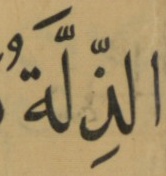 الذِّلَّةَ